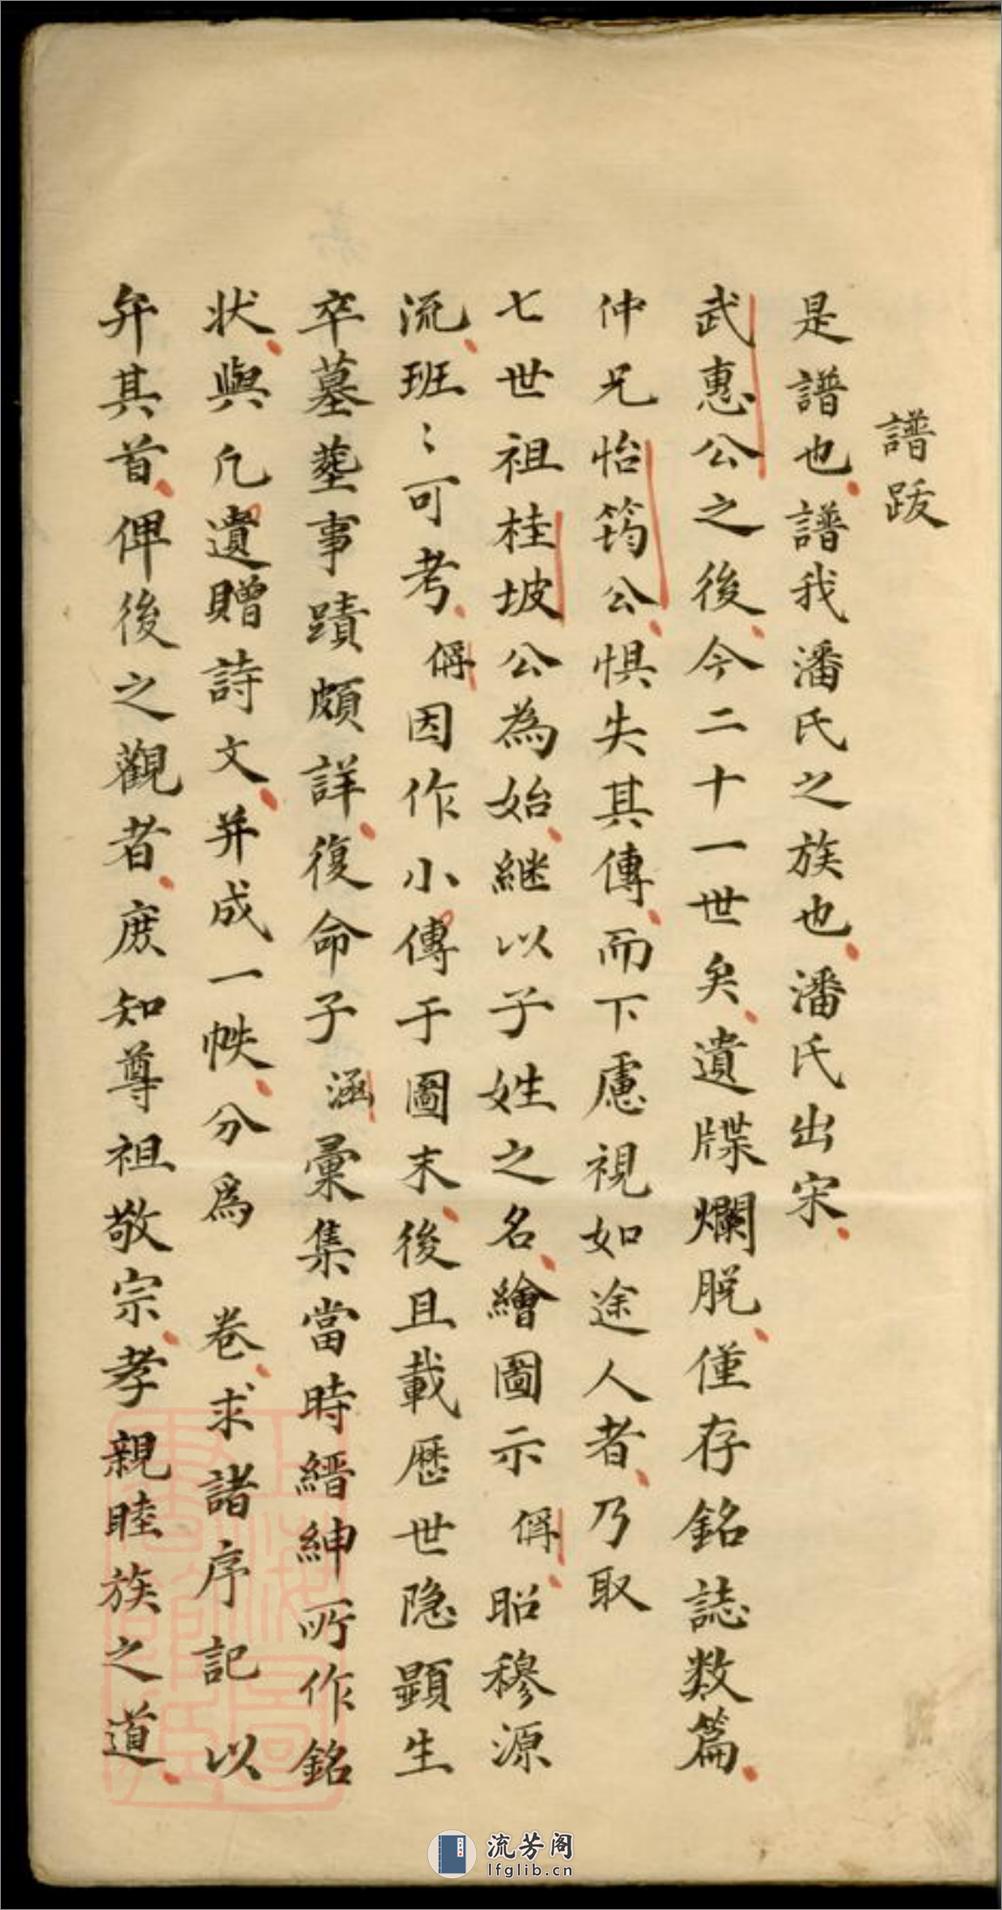 譜跋
是譜也譜我潘氏之族也潘氏出宋
武惠公之後今二十一世矣遺牒爛脱僅存銘誌数篇
仲兄怡筠公惧失其傳而下慮視如途人者乃取
七世祖桂坡公為始継以子姓之名繪圖示偁昭穆源
流班〻可考偁因作小傳于圖末後且載歷世隐顕生
卒墓塟事蹟頗詳復命子涵彙集當時縉紳所作銘
状與凡遺贈詩文并成一帙分爲 卷求諸序記以
弁其首俾後之觀者庻知尊祖敬宗孝親睦族之道
流芳阁
lfglib.cn